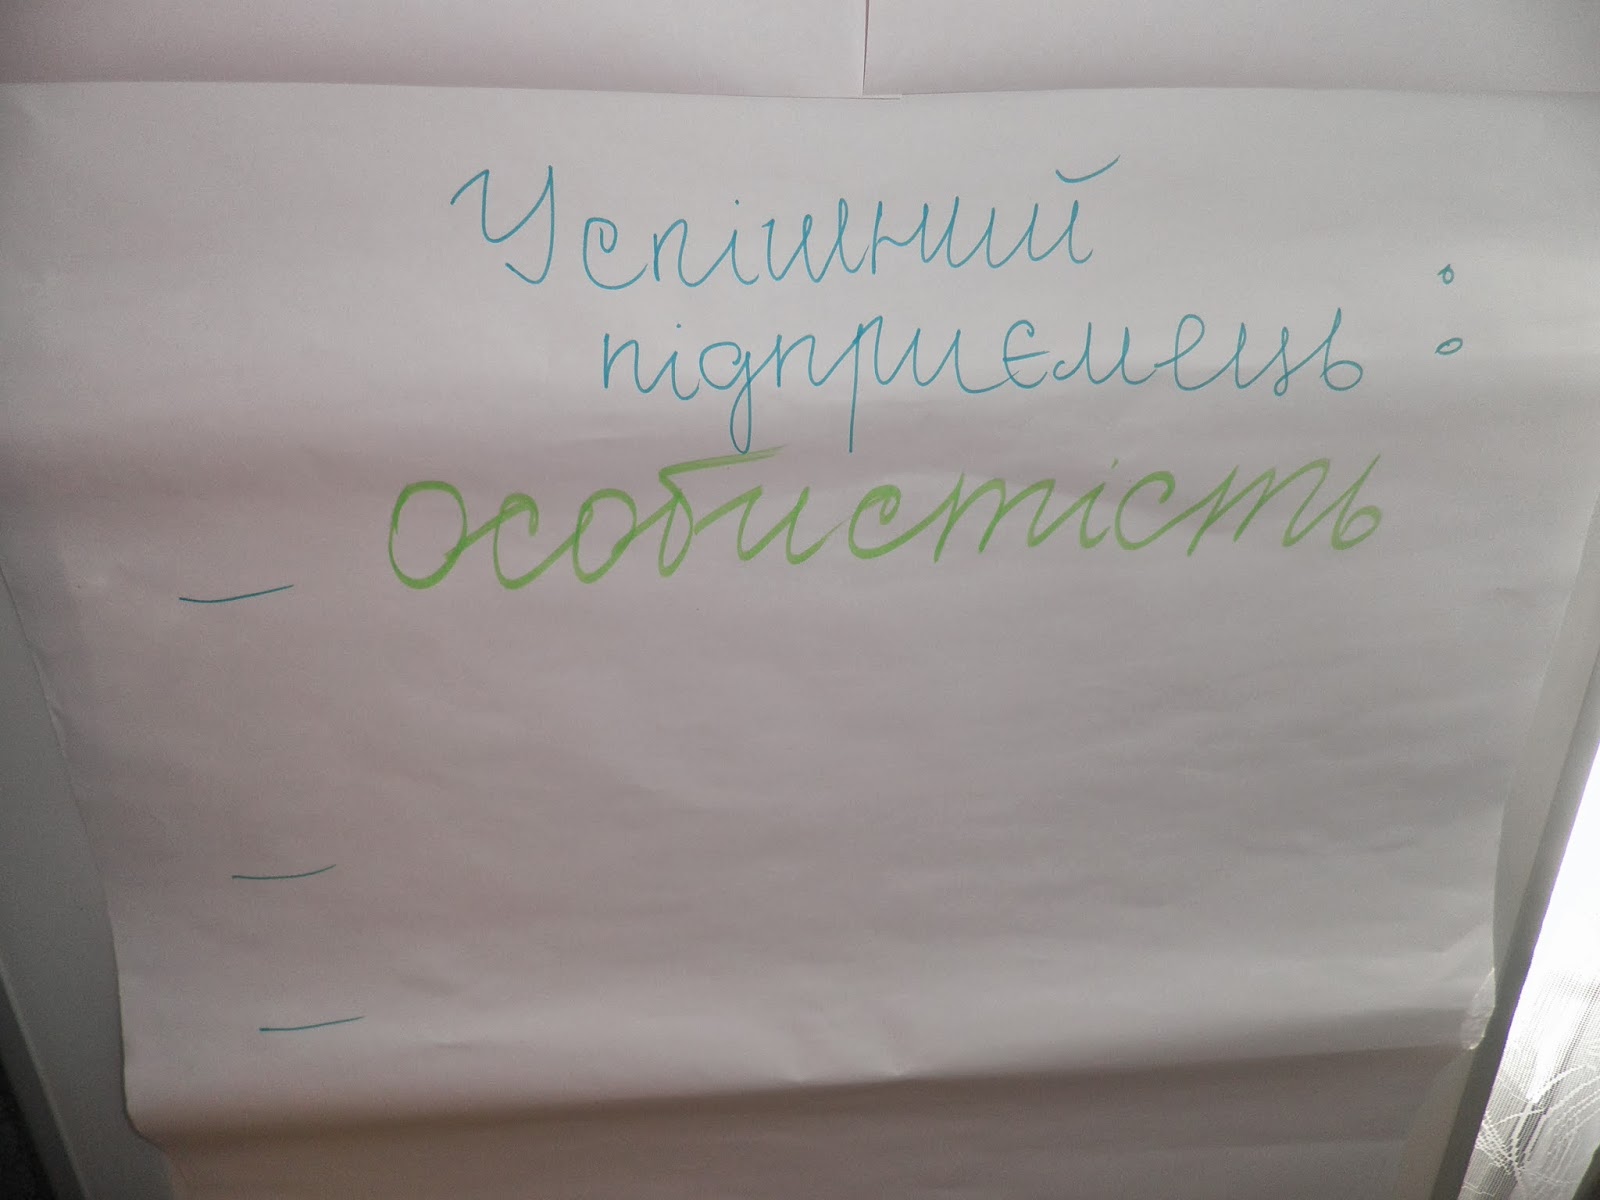 Успішний
підприємець:
– особистість
–
–